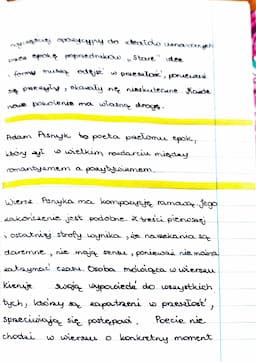 najczęściej opozycyjny do ideałów uznawanych
przez epokę poprzedników. „Stare" idee
i formy muszą odejść w przeszłość, ponieważ
się przeżyły, okazały się nieskuteczne. Każde
nowe pokolenie ma własną drogę.
Adam Asnyk to poeta przełomu epok,
który żył w wielkim rozdarciu między
romantyzmem a pozytywizmem.
Wiersz Asnyka ma kompozycję ramową. Jego
zakończenie jest podobne. Z treści pierwszej
i ostatniej strofy wynika, że narzekania są
daremne, nie mają sensu, ponieważ nie można
zatrzymać czasu. Osoba mówiąca w wierszu
kieruje swoją wypowiedź do wszystkich
tych, którzy są zapatrzeni w przeszłość,
sprzeciwiają się postępowi. Poecie nie
chodzi w wierszu o konkretny moment